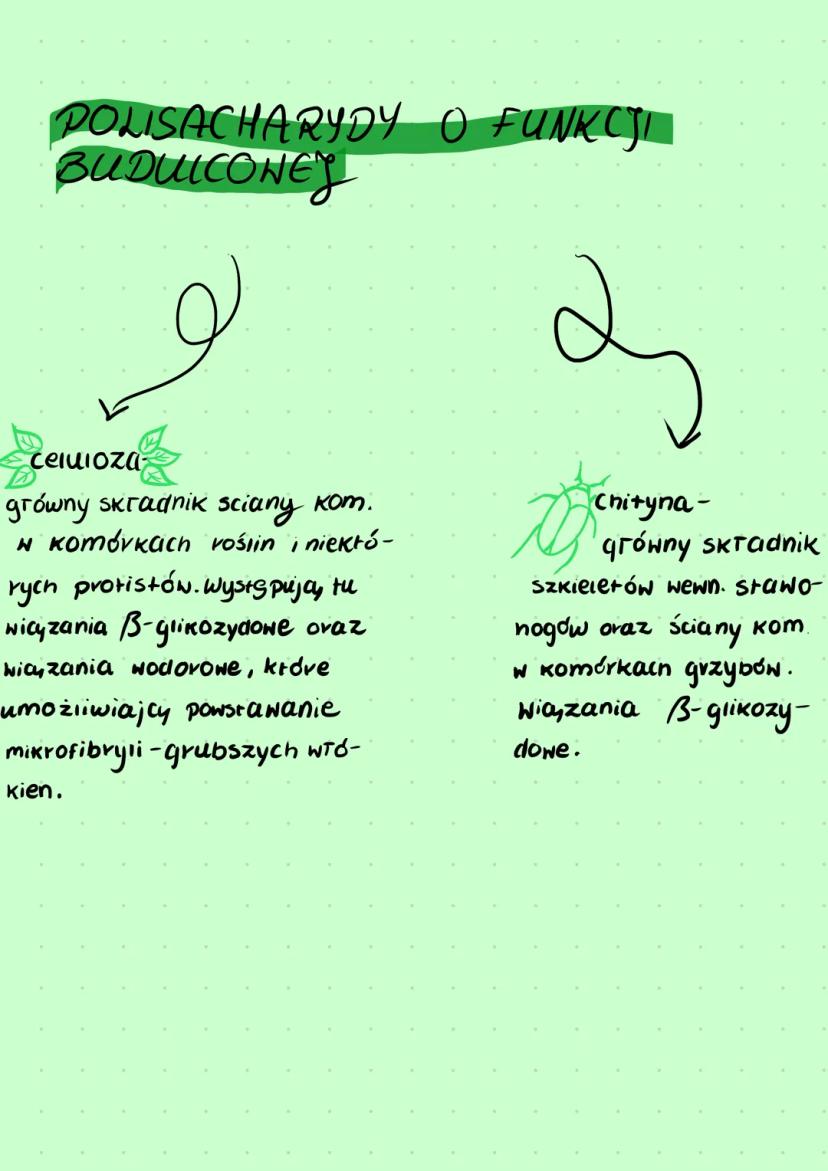 POLISACHARYDY O FUNKCJI
BUDULCOWEJ
celuloza-
główny składnik ściany kom.
w komórkach roślin i niektó-
rych protistów. Występują tu
wiązania β-glikozydowe oraz
wiązania wodorowe, które
umożliwiają powstawanie
mikrofibryli - grubszych włó-
kien.
chityna-
główny składnik
szkieletów wewn. stawo-
nogów oraz ściany kom.
w komórkach grzybów.
Wiązania β-glikozy-
dowe.